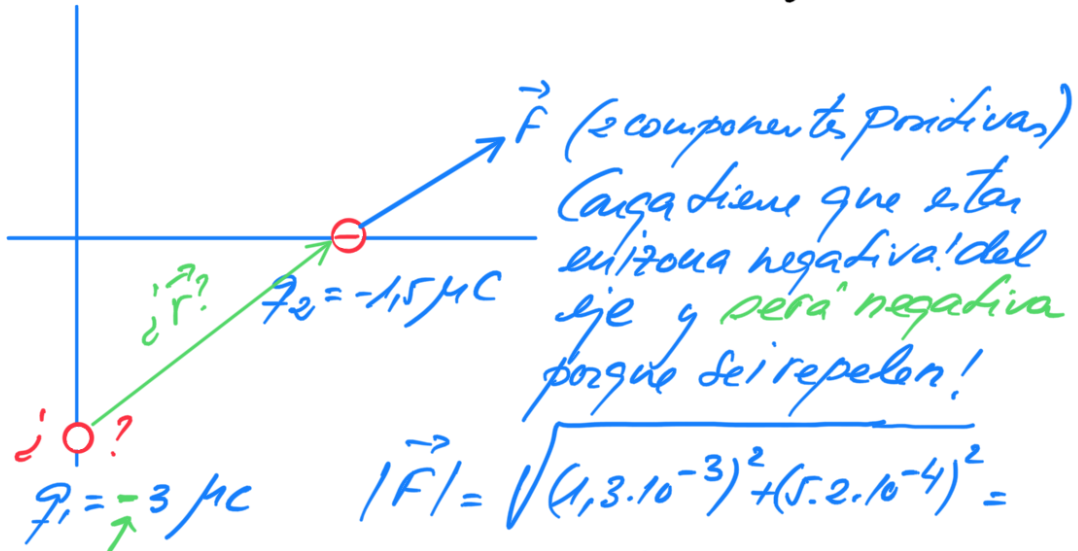 F (2 componentes positivas)
Carga tiene que estar
en zona negativa! del
eje y será negativa
porque se repelen!
¿r?
q₂ = -1,5 μC
¿ ?
q₁ = -3 μC
|F| = √(1,3·10⁻³)² + (5.2·10⁻⁴)² =